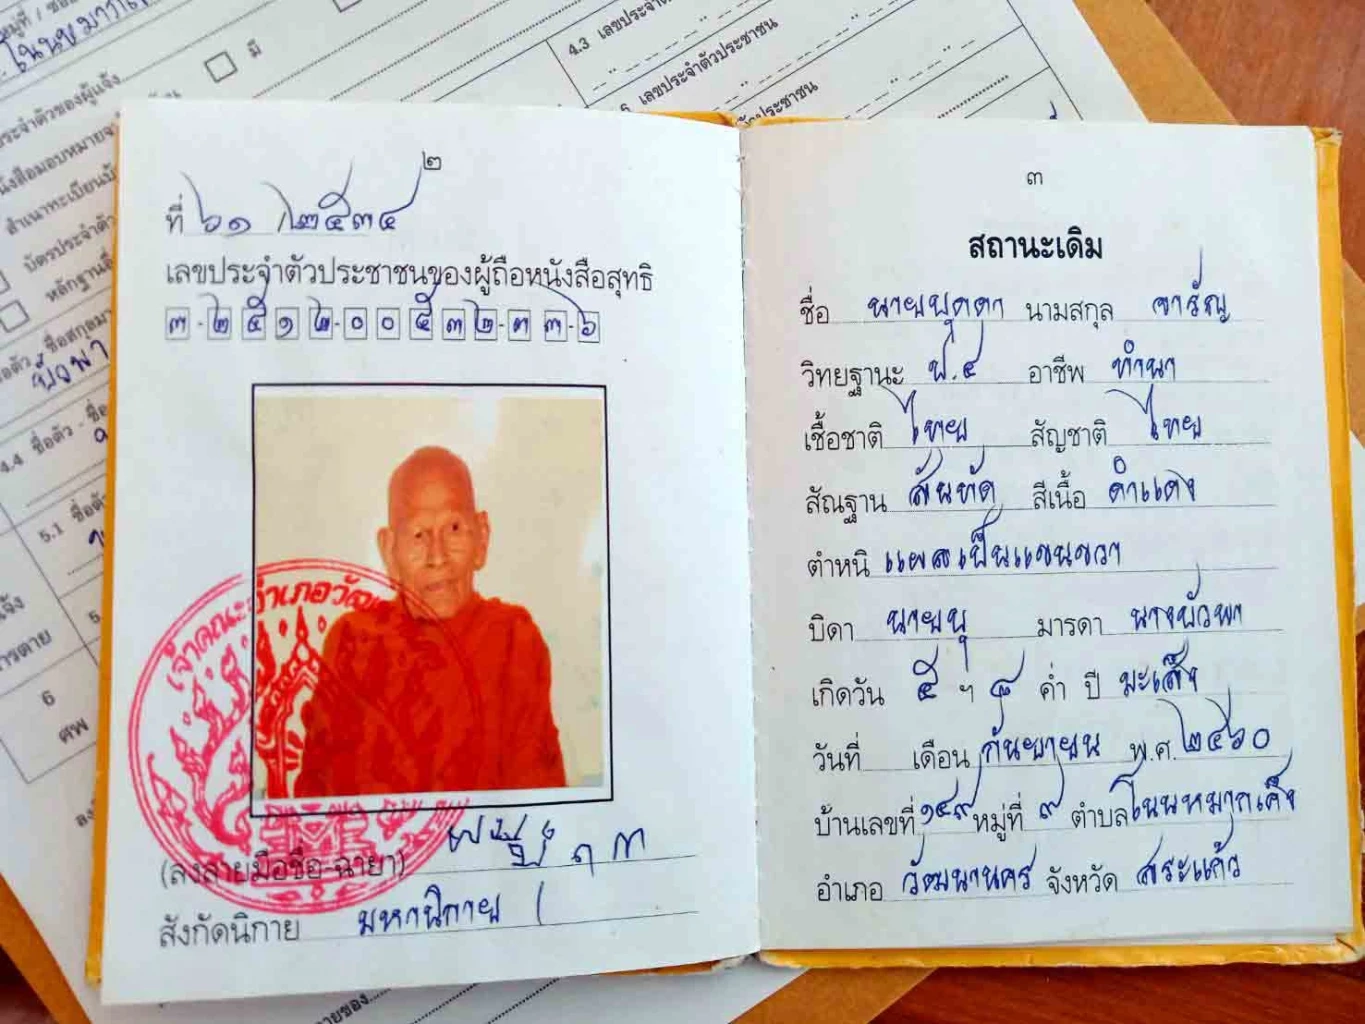 ๒
ที่ ๖๑ /๒๕๓๔
เลขประจำตัวประชาชนของผู้ถือหนังสือสุทธิ
๓-๒๕๑๒-๐๐๕๓๒-๓๓-๖
เจ้าคณะอำเภอวัฒนา
(ลงลายมือชื่อ-ฉายา)
สังกัดนิกาย มหานิกาย
๓
สถานะเดิม
ชื่อ นายพุดดา นามสกุล จารัญ
วิทยฐานะ ป.๔ อาชีพ ทำนา
เชื้อชาติ ไทย สัญชาติ ไทย
สัณฐาน สันทัด สีเนื้อ ดำแดง
ตำหนิ แผลเป็นแขนขวา
บิดา นายนุ มารดา นางบัวพา
เกิดวัน ๕ ฯ ๘ ค่ำ ปี มะเส็ง
วันที่ เดือน กันยายน พ.ศ. ๒๔๖๐
บ้านเลขที่ ๑๔๙ หมู่ที่ ๙ ตำบล โนนหมากเค็ง
อำเภอ วัฒนานคร จังหวัด สระแก้ว
มี
4.3 เลขประจำตัวประชาชน
เลขประจำตัวประชาชน
สำเนาทะเบียนบ้าน
บัตรประจำตัว
บัวพา
4.4 ชื่อตัว - ชื่อ
5.1 ชื่อตัว
6
ศพ